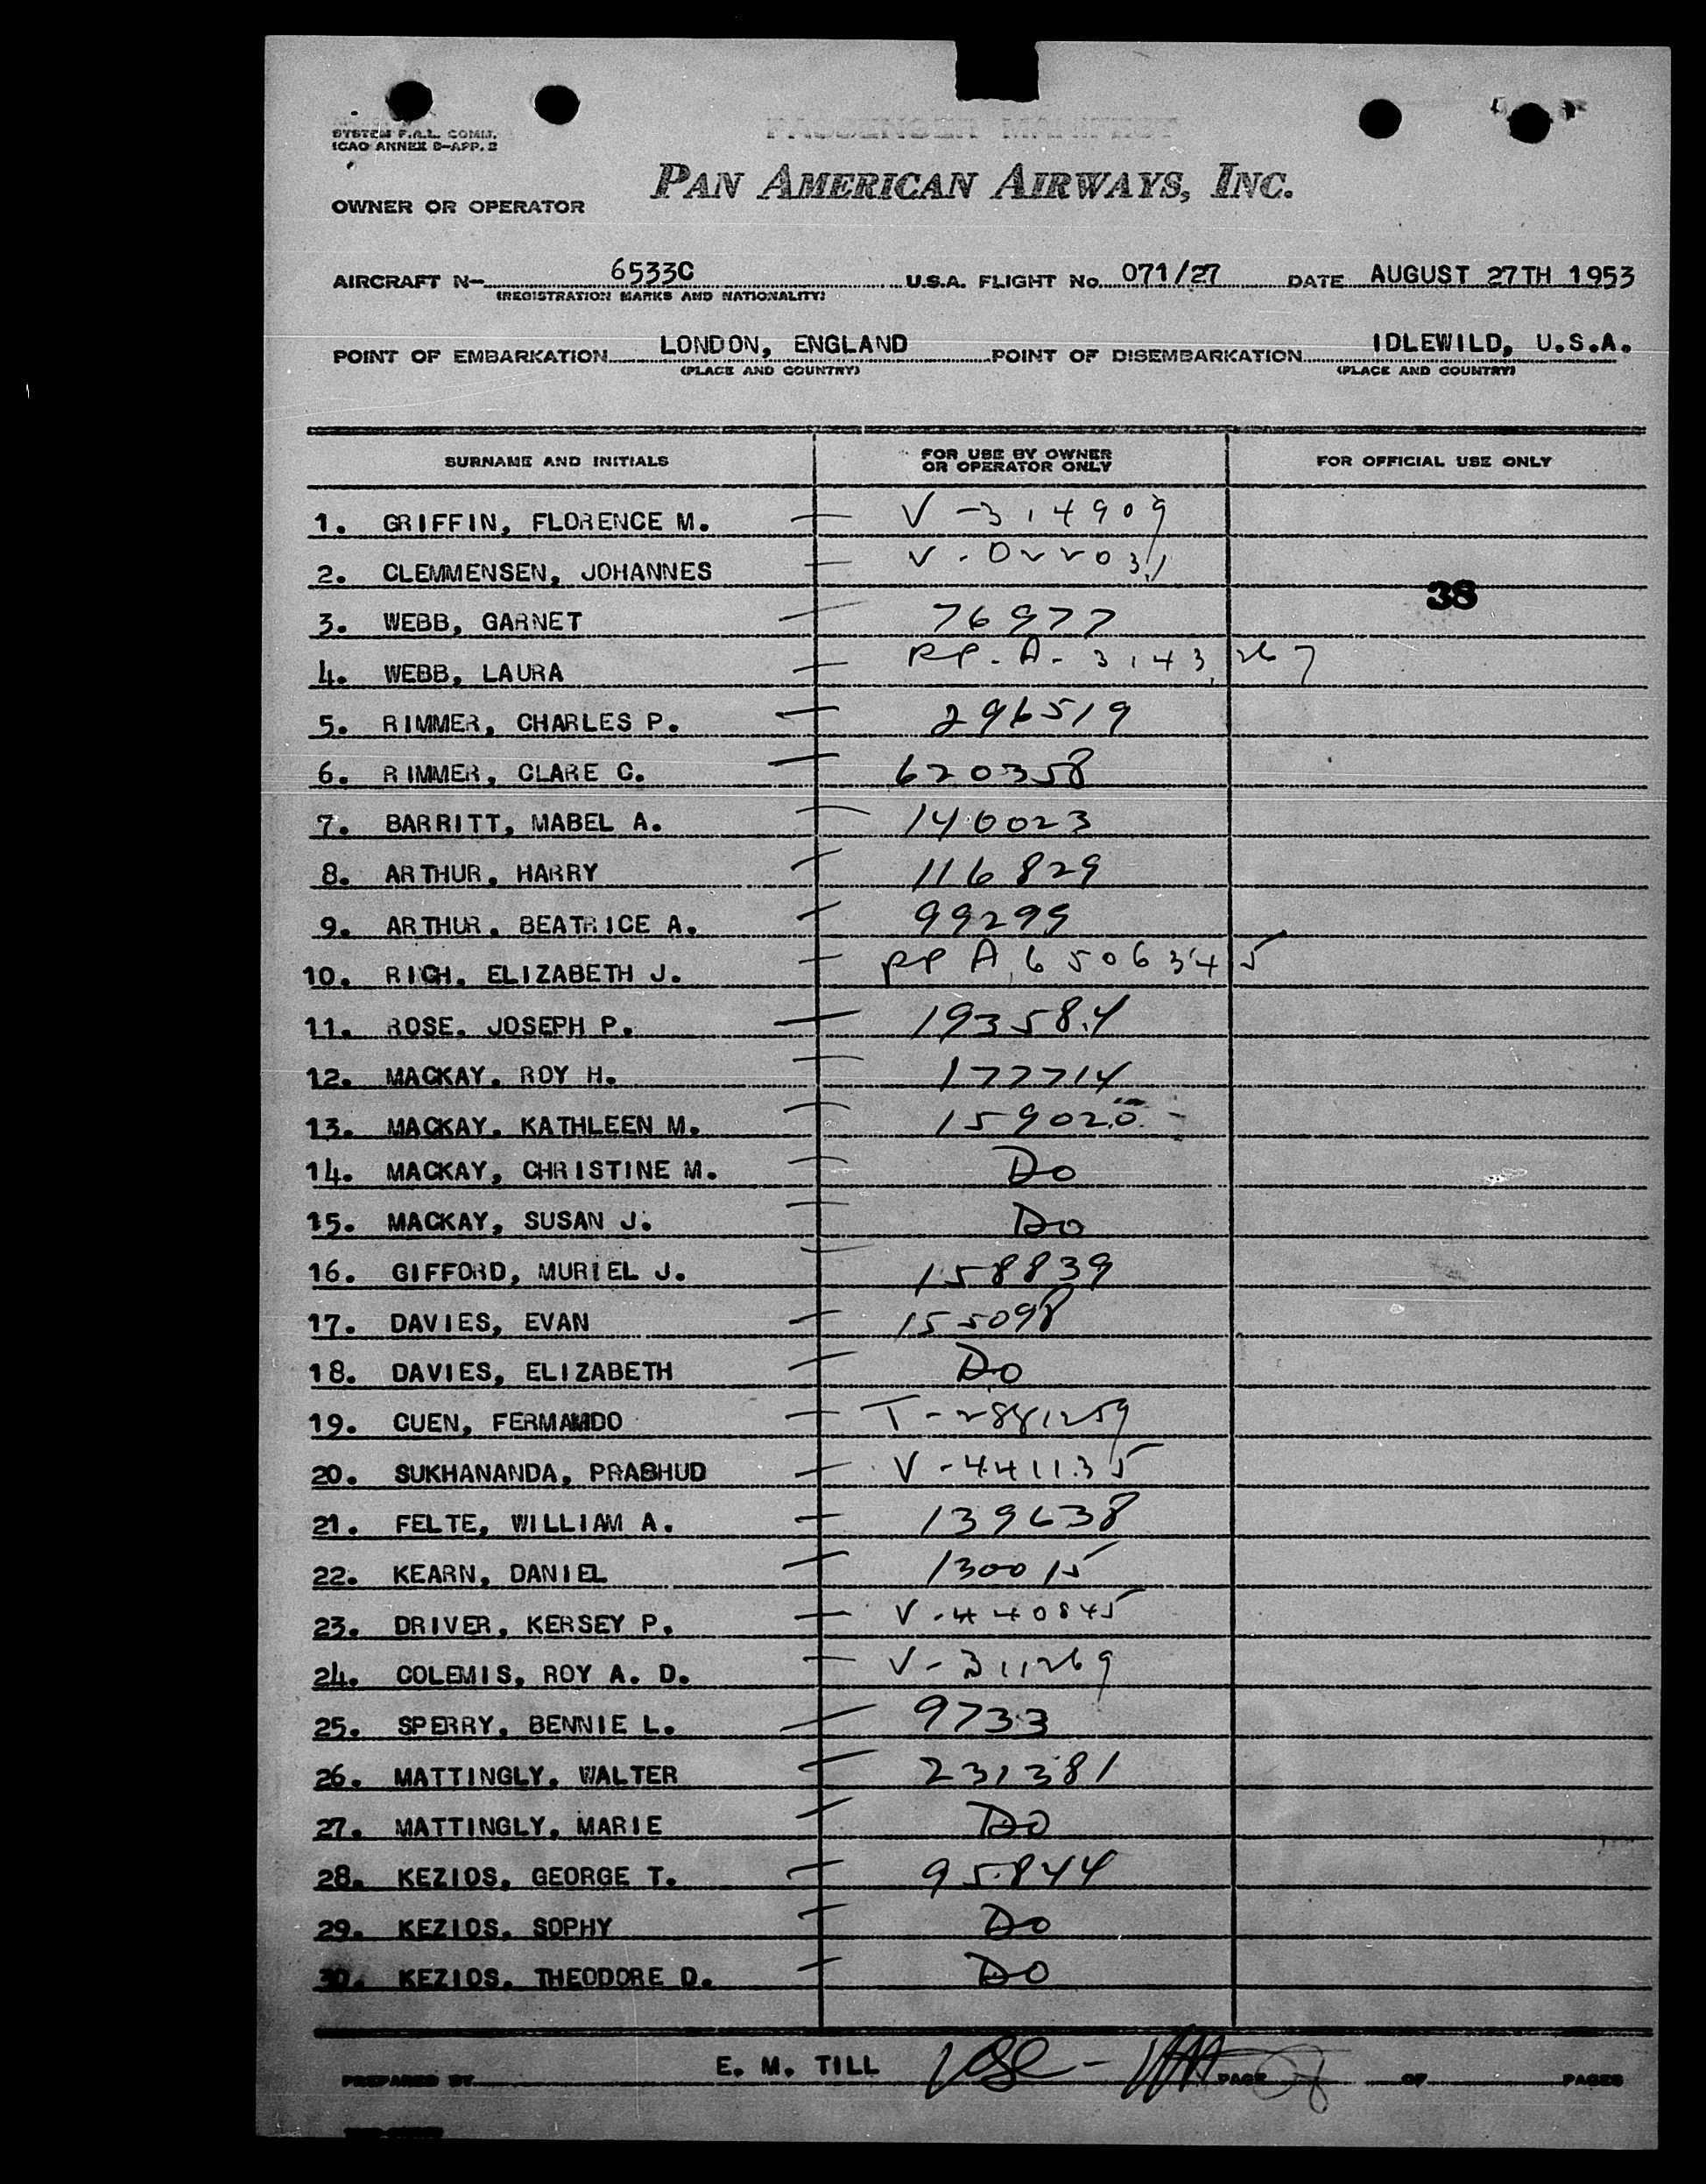 SYSTEM F.A.L. COMM.
ICAO ANNEX 9-APP. 2
PASSENGER MANIFEST
PAN AMERICAN AIRWAYS, INC.
OWNER OR OPERATOR
AIRCRAFT N- 6533C U.S.A. FLIGHT No. 071/27 DATE AUGUST 27TH 1953
(REGISTRATION MARKS AND NATIONALITY)
POINT OF EMBARKATION LONDON, ENGLAND POINT OF DISEMBARKATION IDLEWILD, U.S.A.
(PLACE AND COUNTRY) (PLACE AND COUNTRY)
SURNAME AND INITIALS FOR USE BY OWNER OR OPERATOR ONLY FOR OFFICIAL USE ONLY
1. GRIFFIN, FLORENCE M. V-314909
2. CLEMMENSEN, JOHANNES V-022031
38
3. WEBB, GARNET 76977
4. WEBB, LAURA RP-A-3143267
5. RIMMER, CHARLES P. 296519
6. RIMMER, CLARE C. 620358
7. BARRITT, MABEL A. 140023
8. ARTHUR, HARRY 116829
9. ARTHUR, BEATRICE A. 99299
10. RICH, ELIZABETH J. RP A 6506345
11. ROSE, JOSEPH P. 193584
12. MACKAY, ROY H. 177714
13. MACKAY, KATHLEEN M. 159020
14. MACKAY, CHRISTINE M. Do
15. MACKAY, SUSAN J. Do
16. GIFFORD, MURIEL J. 158839
17. DAVIES, EVAN 155098
18. DAVIES, ELIZABETH Do
19. CUEN, FERMAMDO T-2881259
20. SUKHANANDA, PRABHUD V-441135
21. FELTE, WILLIAM A. 139638
22. KEARN, DANIEL 130015
23. DRIVER, KERSEY P. V-440845
24. COLEMIS, ROY A. D. V-311269
25. SPERRY, BENNIE L. 9733
26. MATTINGLY, WALTER 231381
27. MATTINGLY, MARIE Do
28. KEZIOS, GEORGE T. 95844
29. KEZIOS, SOPHY Do
30. KEZIOS, THEODORE D. Do
PREPARED BY E. M. TILL PAGE OF PAGES